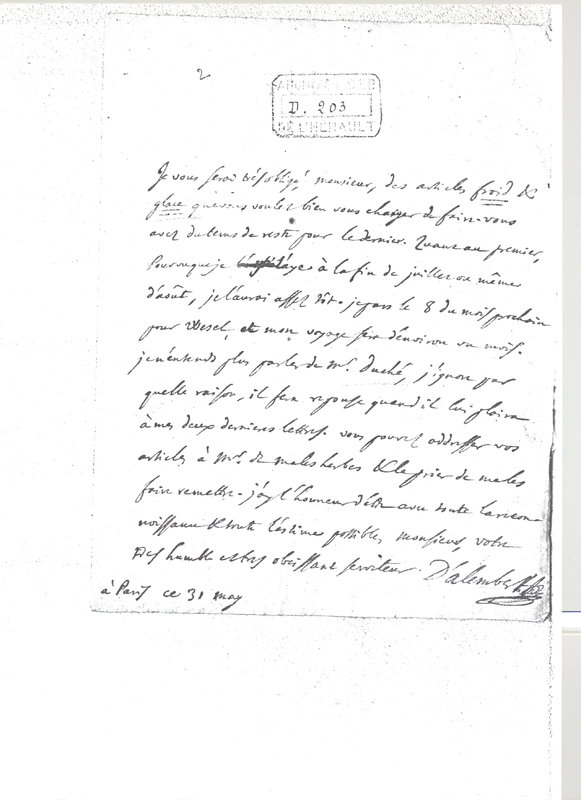 2
ARCHIVES DEP
D. 203
DE L'HERAULT
Je vous serai très obligé, monsieur, des articles froid &
glace que vous voulez bien vous charger de faire. vous
avez du tems de reste pour le dernier. Quant au premier,
pourvu que je l'aye à la fin de juillet ou même
d'août, je l'aurai assez tôt. je pars le 8 du mois prochain
pour Wesel, et mon voyage sera d'environ un mois.
je n'entends plus parler de Mr. Duché, j'ignore par
quelle raison, il fera reponse quand il lui plaira
à mes deux dernieres lettres. vous pouvez addresser vos
articles à Mr. de malesherbes & le prier de me les
faire remettre. j'ay l'honneur d'etre avec toute la recon-
noissance & toute l'estime possibles, monsieur, votre
tres humble et tres obeissant serviteur. D'alembert
à Paris ce 31 may